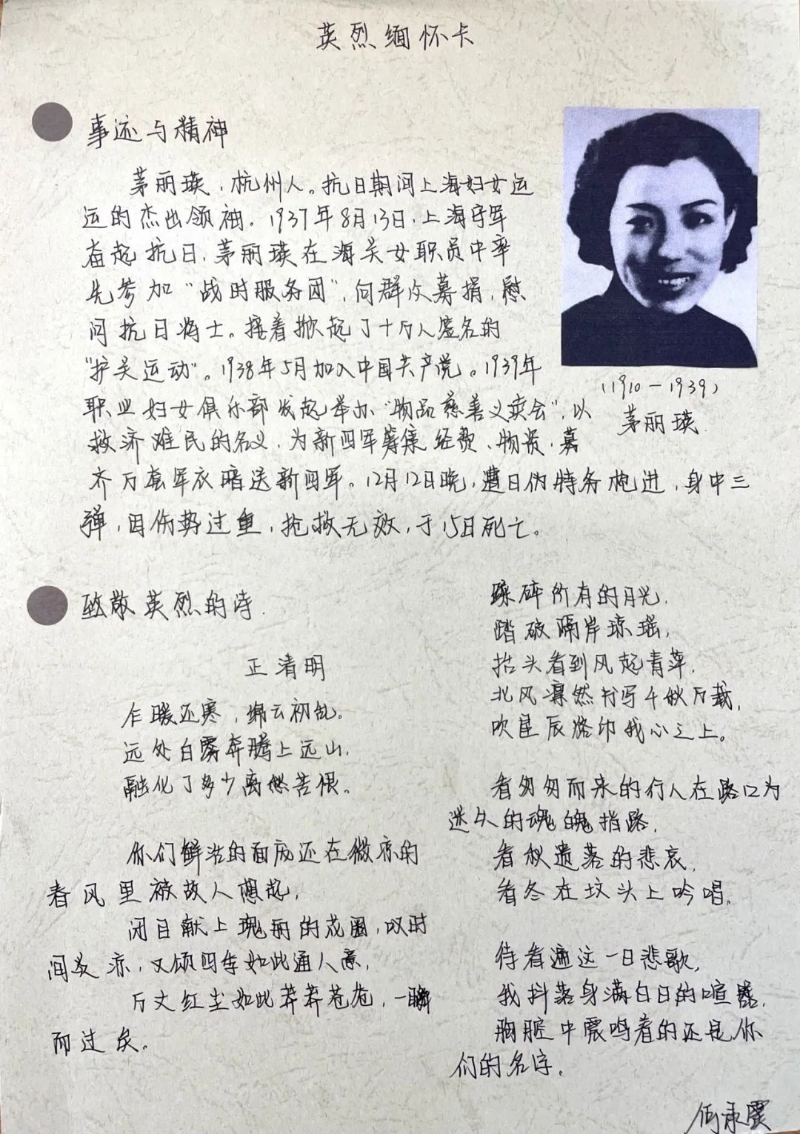 英烈缅怀卡
事迹与精神
茅丽瑛，杭州人。抗日期间上海妇女运
运的杰出领袖。1937年8月13日，上海守军
奋起抗日，茅丽瑛在海关女职员中率
先参加“战时服务团”，向群众募捐，慰
问抗日将士。接着掀起了十万人签名的
“护关运动”。1938年5月加入中国共产党。1939年
职业妇女俱乐部发起举办“物品慈善义卖会”，以
救济难民的名义，为新四军筹集经费、物资，募
齐万套军衣暗送新四军。12月12日晚，遭日伪特务枪进，身中三
弹，因伤势过重，抢救无效，于15日死亡。
(1910－1939)
茅丽瑛
致敬英烈的诗
正清明
乍暖还寒，绵云初乱。
远处白雾奔腾上远山，
融化了多少离愁苦恨。
你们鲜活的面庞还在微凉的
春风里被故人想起，
闭目献上瑰丽的花圈，叹时
间炎凉，又颂四季如此通人意，
万丈红尘如此莽莽苍苍，一瞬
而过矣。
踩碎所有的月光，
踏破隔岸琼瑶，
抬头看到风起青萍，
北风凛然书写千秋万载，
吹星辰烙印我心之上。
看匆匆而来的行人在路口为
迷失的魂魄指路，
看秋遗落的悲哀，
看冬在坟头上吟唱。
待看遍这一日悲歌，
我抖落身满白日的喧嚣，
胸腔中震鸣着的还是你
们的名字。